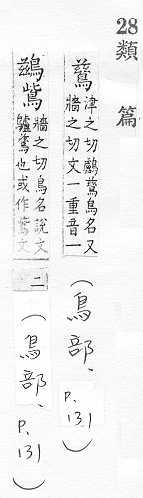 28 類篇
鶿
津之切鸕鶿鳥名又
牆之切文一重音一
(鳥部、P.131)
鷀鴜
牆之切鳥名說文
鸕鶿也或作鴜文
二
(鳥部、P.131)